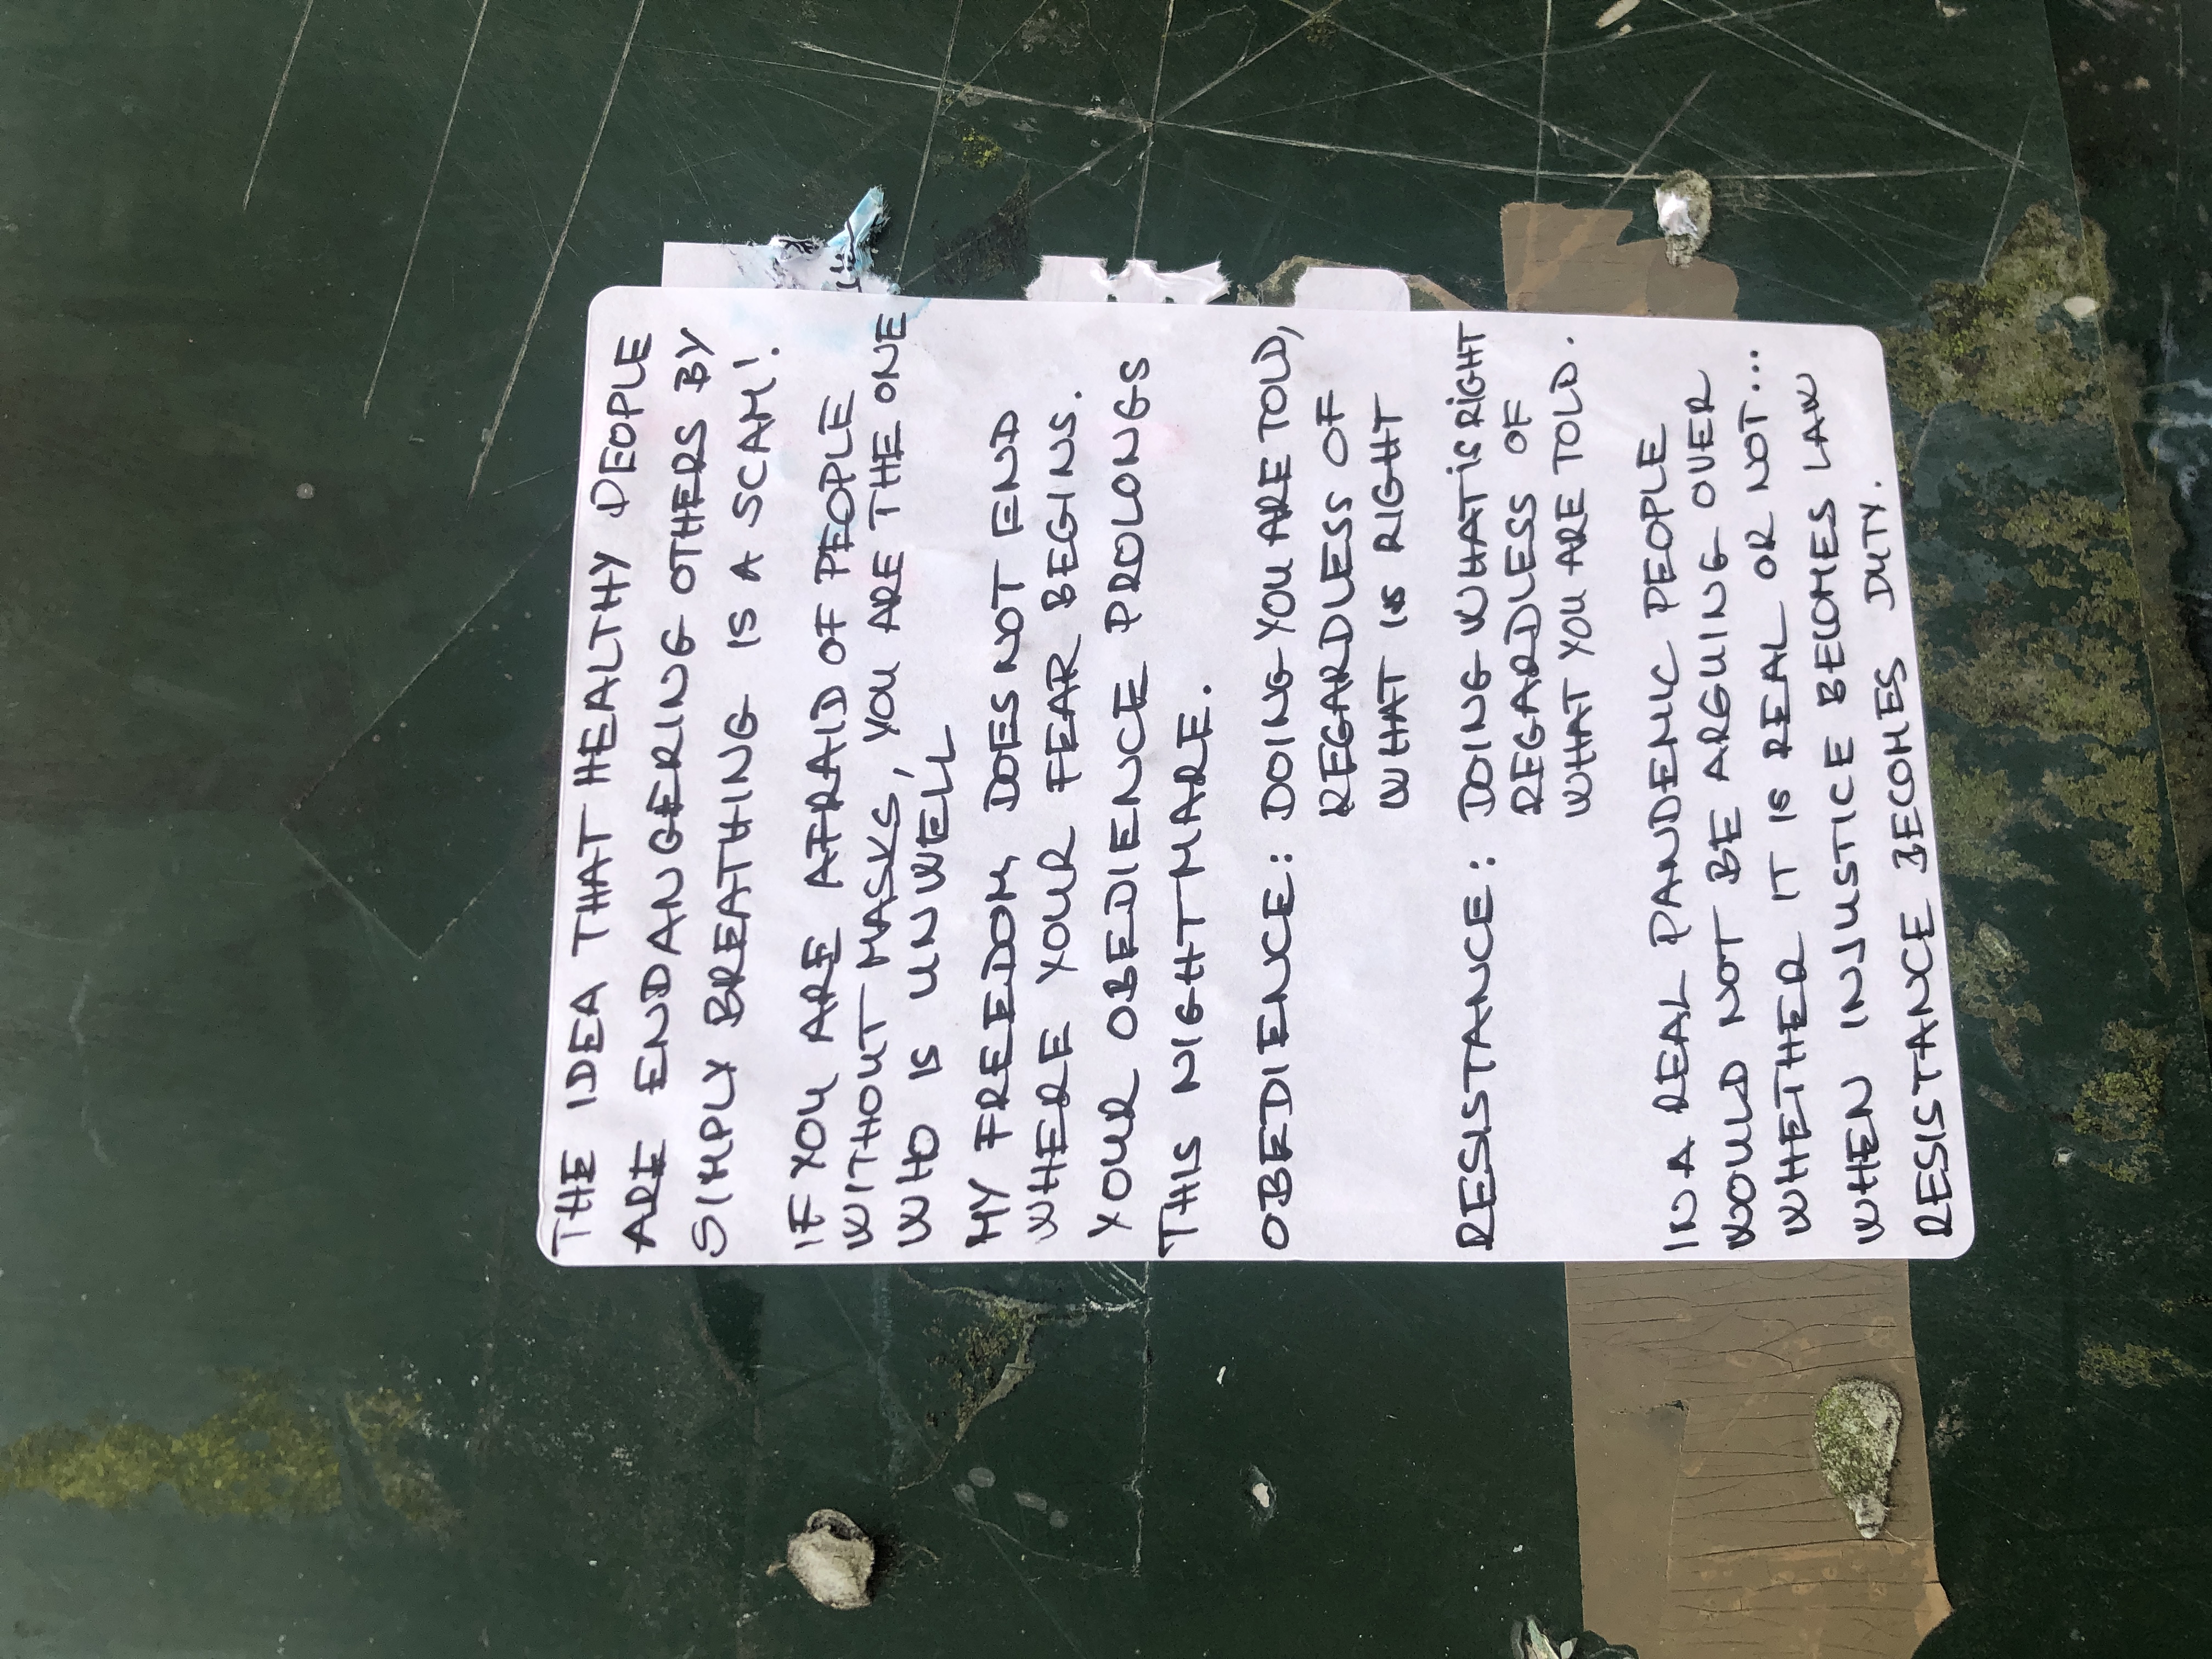 THE IDEA THAT HEALTHY PEOPLE
ARE ENDANGERING OTHERS BY
SIMPLY BREATHING IS A SCAM!
IF YOU ARE AFRAID OF PEOPLE
WITHOUT MASKS, YOU ARE THE ONE
WHO IS UNWELL
MY FREEDOM DOES NOT END
WHERE YOUR FEAR BEGINS.
YOUR OBEDIENCE PROLONGS
THIS NIGHTMARE.
OBEDIENCE: DOING YOU ARE TOLD,
REGARDLESS OF
WHAT IS RIGHT
RESISTANCE: DOING WHAT IS RIGHT
REGARDLESS OF
WHAT YOU ARE TOLD.
IN A REAL PANDEMIC PEOPLE
WOULD NOT BE ARGUING OVER
WHETHER IT IS REAL OR NOT...
WHEN INJUSTICE BECOMES LAW
RESISTANCE BECOMES DUTY.